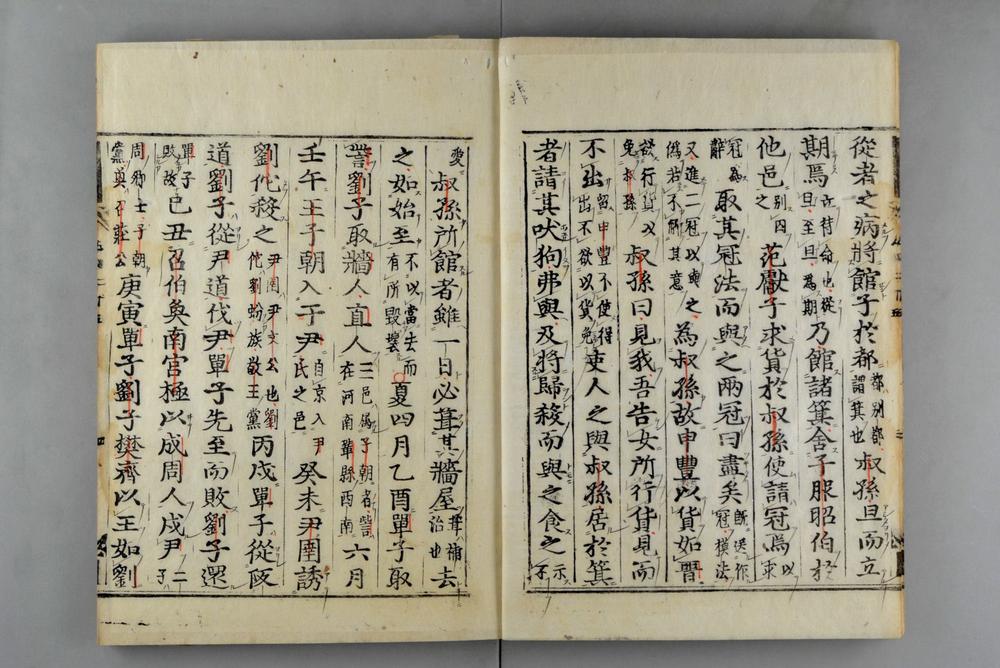 從者之病將館子於都都別都謂箕也叔孫旦而立
期焉立待命也從旦至旦爲期乃館諸箕舍子服昭伯於
他邑別囚之范獻子求貨於叔孫使請冠焉以求
冠爲辭取其冠法而與之兩冠曰盡矣既送作冠模法
又進二冠以與之僞若不解其意爲叔孫故申豐以貨如晉
欲行貨以免叔孫叔孫曰見我吾告女所行貨見而
不出留申豐不使得出不欲以貨免吏人之與叔孫居於箕
者請其吠狗弗與及將歸殺而與之食之示不
愛叔孫所館者雖一日必葺其牆屋葺補治也去
之如始至不以當去而有所毀壞夏四月乙酉單子取
訾劉子取牆人直人三邑屬子朝者訾在河南鞏縣西南六月
壬午王子朝入于尹自京入尹氏之邑癸未尹圉誘
劉佗殺之尹圉尹文公也劉佗劉蚡族敬王黨丙戌單子從阪
道劉子從尹道伐尹單子先至而敗劉子還
單子敗故己丑召伯奐南宮極以成周人戍尹二子
周卿士子朝黨奐召莊公庚寅單子劉子樊齊以王如劉